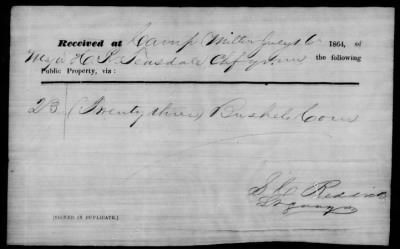 Received at Camp Milton July 16 1864, of
Maj H. R. Teasdale Chf Qr. m the following
Public Property, viz:
23 (Twenty three) Bushels Corn
S. C.
[SIGNED IN DUPLICATE.]